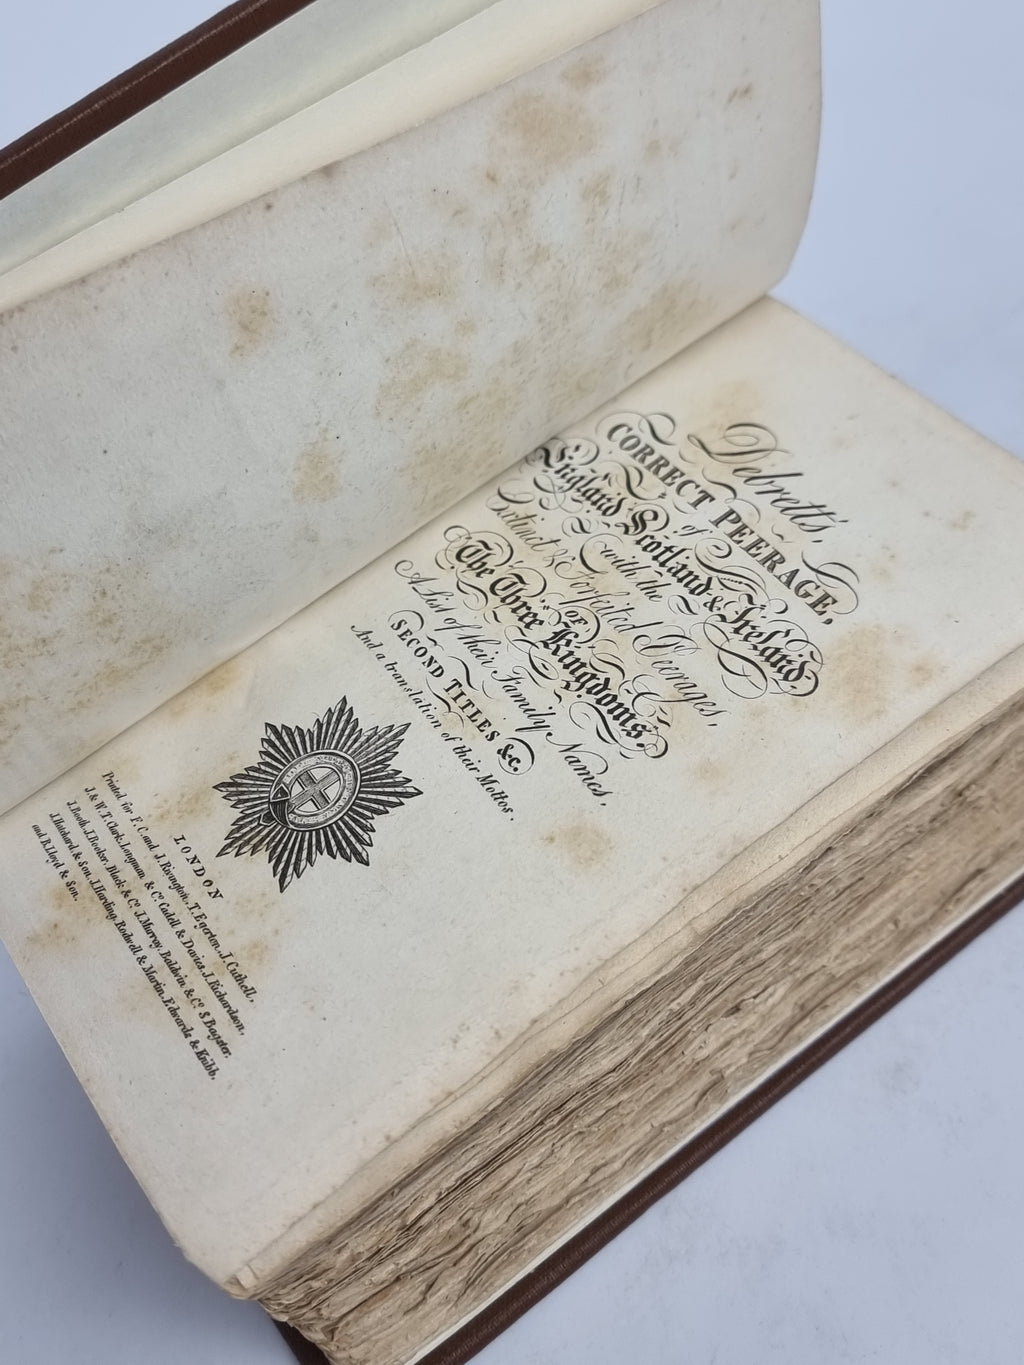 Debrett's,
CORRECT PEERAGE,
of
England Scotland & Ireland,
with the
Extinct & Forfeited Peerages,
OF
The Three Kingdoms.
A List of their Family Names,
SECOND TITLES &c.
And a translation of their Mottos.
LONDON
Printed for F. C. and J. Rivington, T. Egerton, J. Cuthell,
J. & W. T. Clark, Longman & Co. Cadell & Davies, J. Richardson,
J. Booth, J. Booker, Black & Co. J. Murray, Baldwin & Co. S. Bagster,
J. Hatchard & Son, J. Harding, Rodwell & Martin, Edwards & Knibb,
and R. Lloyd & Son.